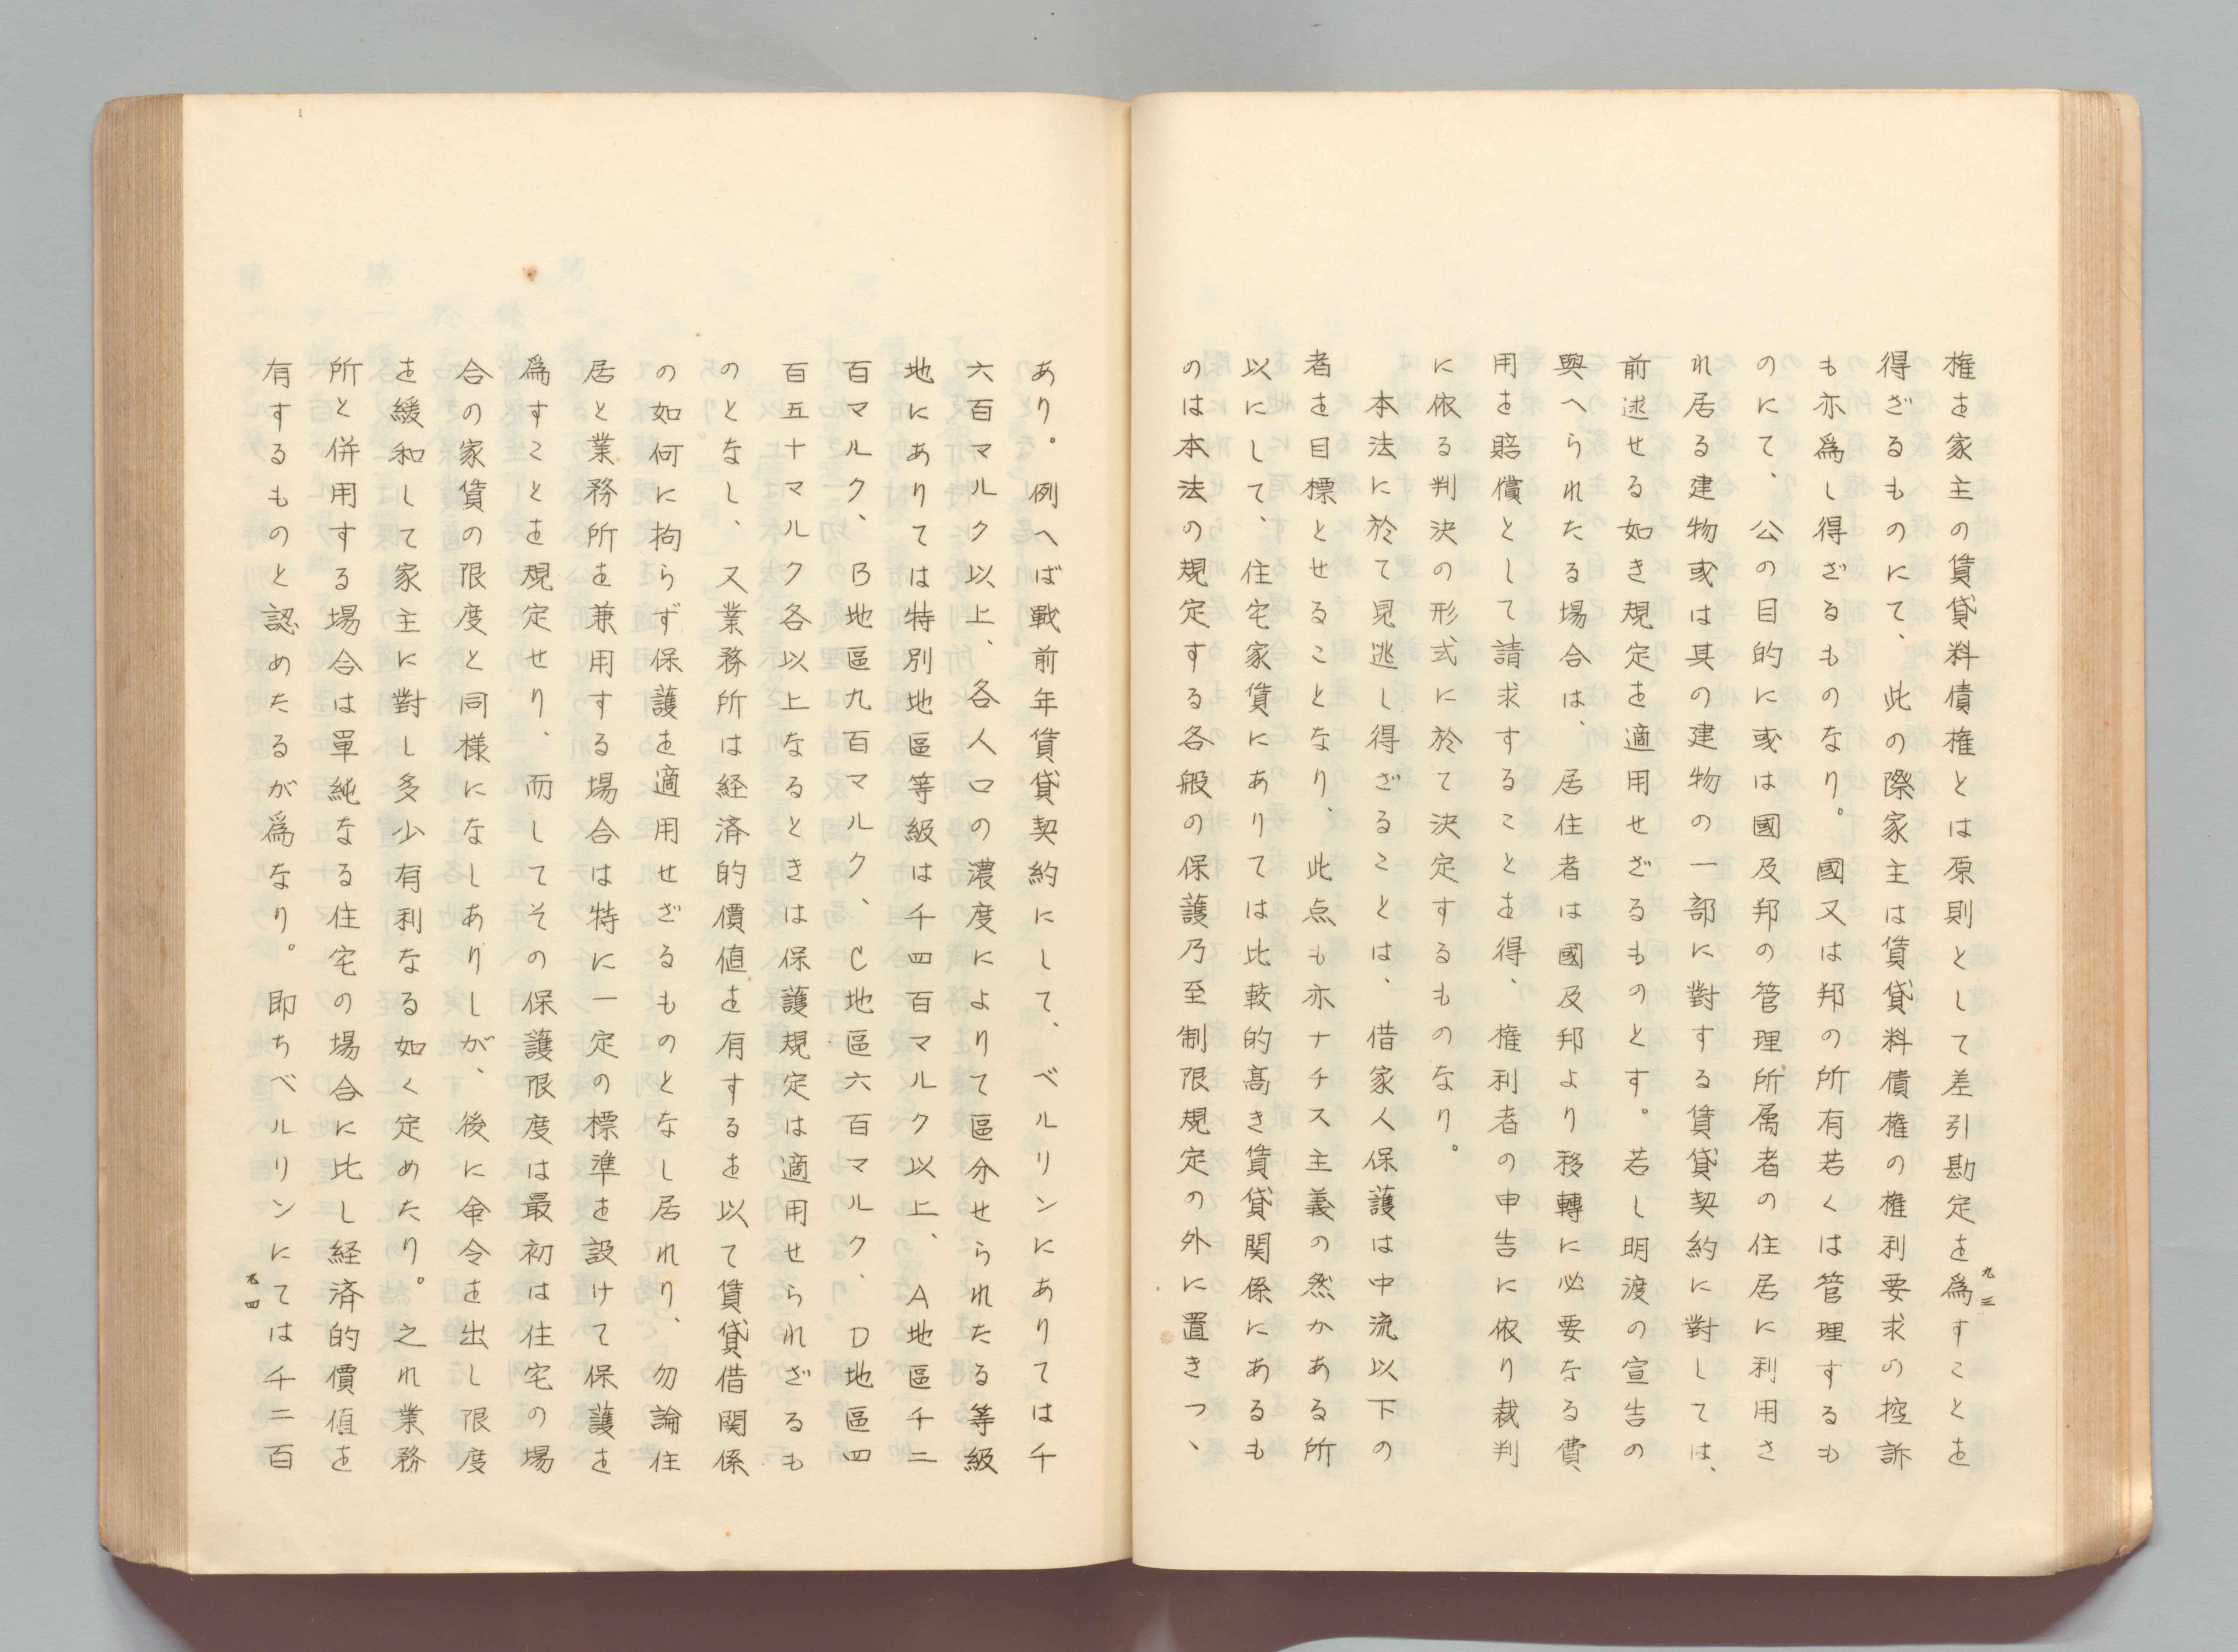 権を家主の賃貸料債権とは原則として差引勘定を爲すことを
得ざるものにて、此の際家主は賃貸料債権の権利要求の控訴
も亦爲し得ざるものなり。國又は邦の所有若くは管理するも
のにて、公の目的に或は國及邦の管理所属者の住居に利用さ
れ居る建物或は其の建物の一部に對する賃貸契約に對しては、
前述せる如き規定を適用せざるものとす。若し明渡の宣告の
與へられたる場合は、居住者は國及邦より移轉に必要なる費
用を賠償として請求することを得、権利者の申告に依り裁判
に依る判決の形式に於て決定するものなり。
本法に於て見逃し得ざることは、借家人保護は中流以下の
者を目標とせることなり、此点も亦ナチス主義の然かある所
以にして、住宅家賃にありては比較的高き賃貸関係にあるも
のは本法の規定する各般の保護乃至制限規定の外に置きつ、
九三
あり。例へば戰前年賃貸契約にして、ベルリンにありては千
六百マルク以上、各人口の濃度によりて區分せられたる等級
地にありては特別地區等級は千四百マルク以上、A地區千二
百マルク、B地區九百マルク、C地區六百マルク、D地區四
百五十マルク各以上なるときは保護規定は適用せられざるも
のとなし、又業務所は経済的價値を有するを以て賃貸借関係
の如何に拘らず保護を適用せざるものとなし居れり、勿論住
居と業務所を兼用する場合は特に一定の標準を設けて保護を
爲すことを規定せり、而してその保護限度は最初は住宅の場
合の家賃の限度と同様になしありしが、後に命令を出し限度
を緩和して家主に對し多少有利なる如く定めたり。之れ業務
所と併用する場合は單純なる住宅の場合に比し経済的價値を
有するものと認めたるが爲なり。即ちベルリンにては千二百
九四